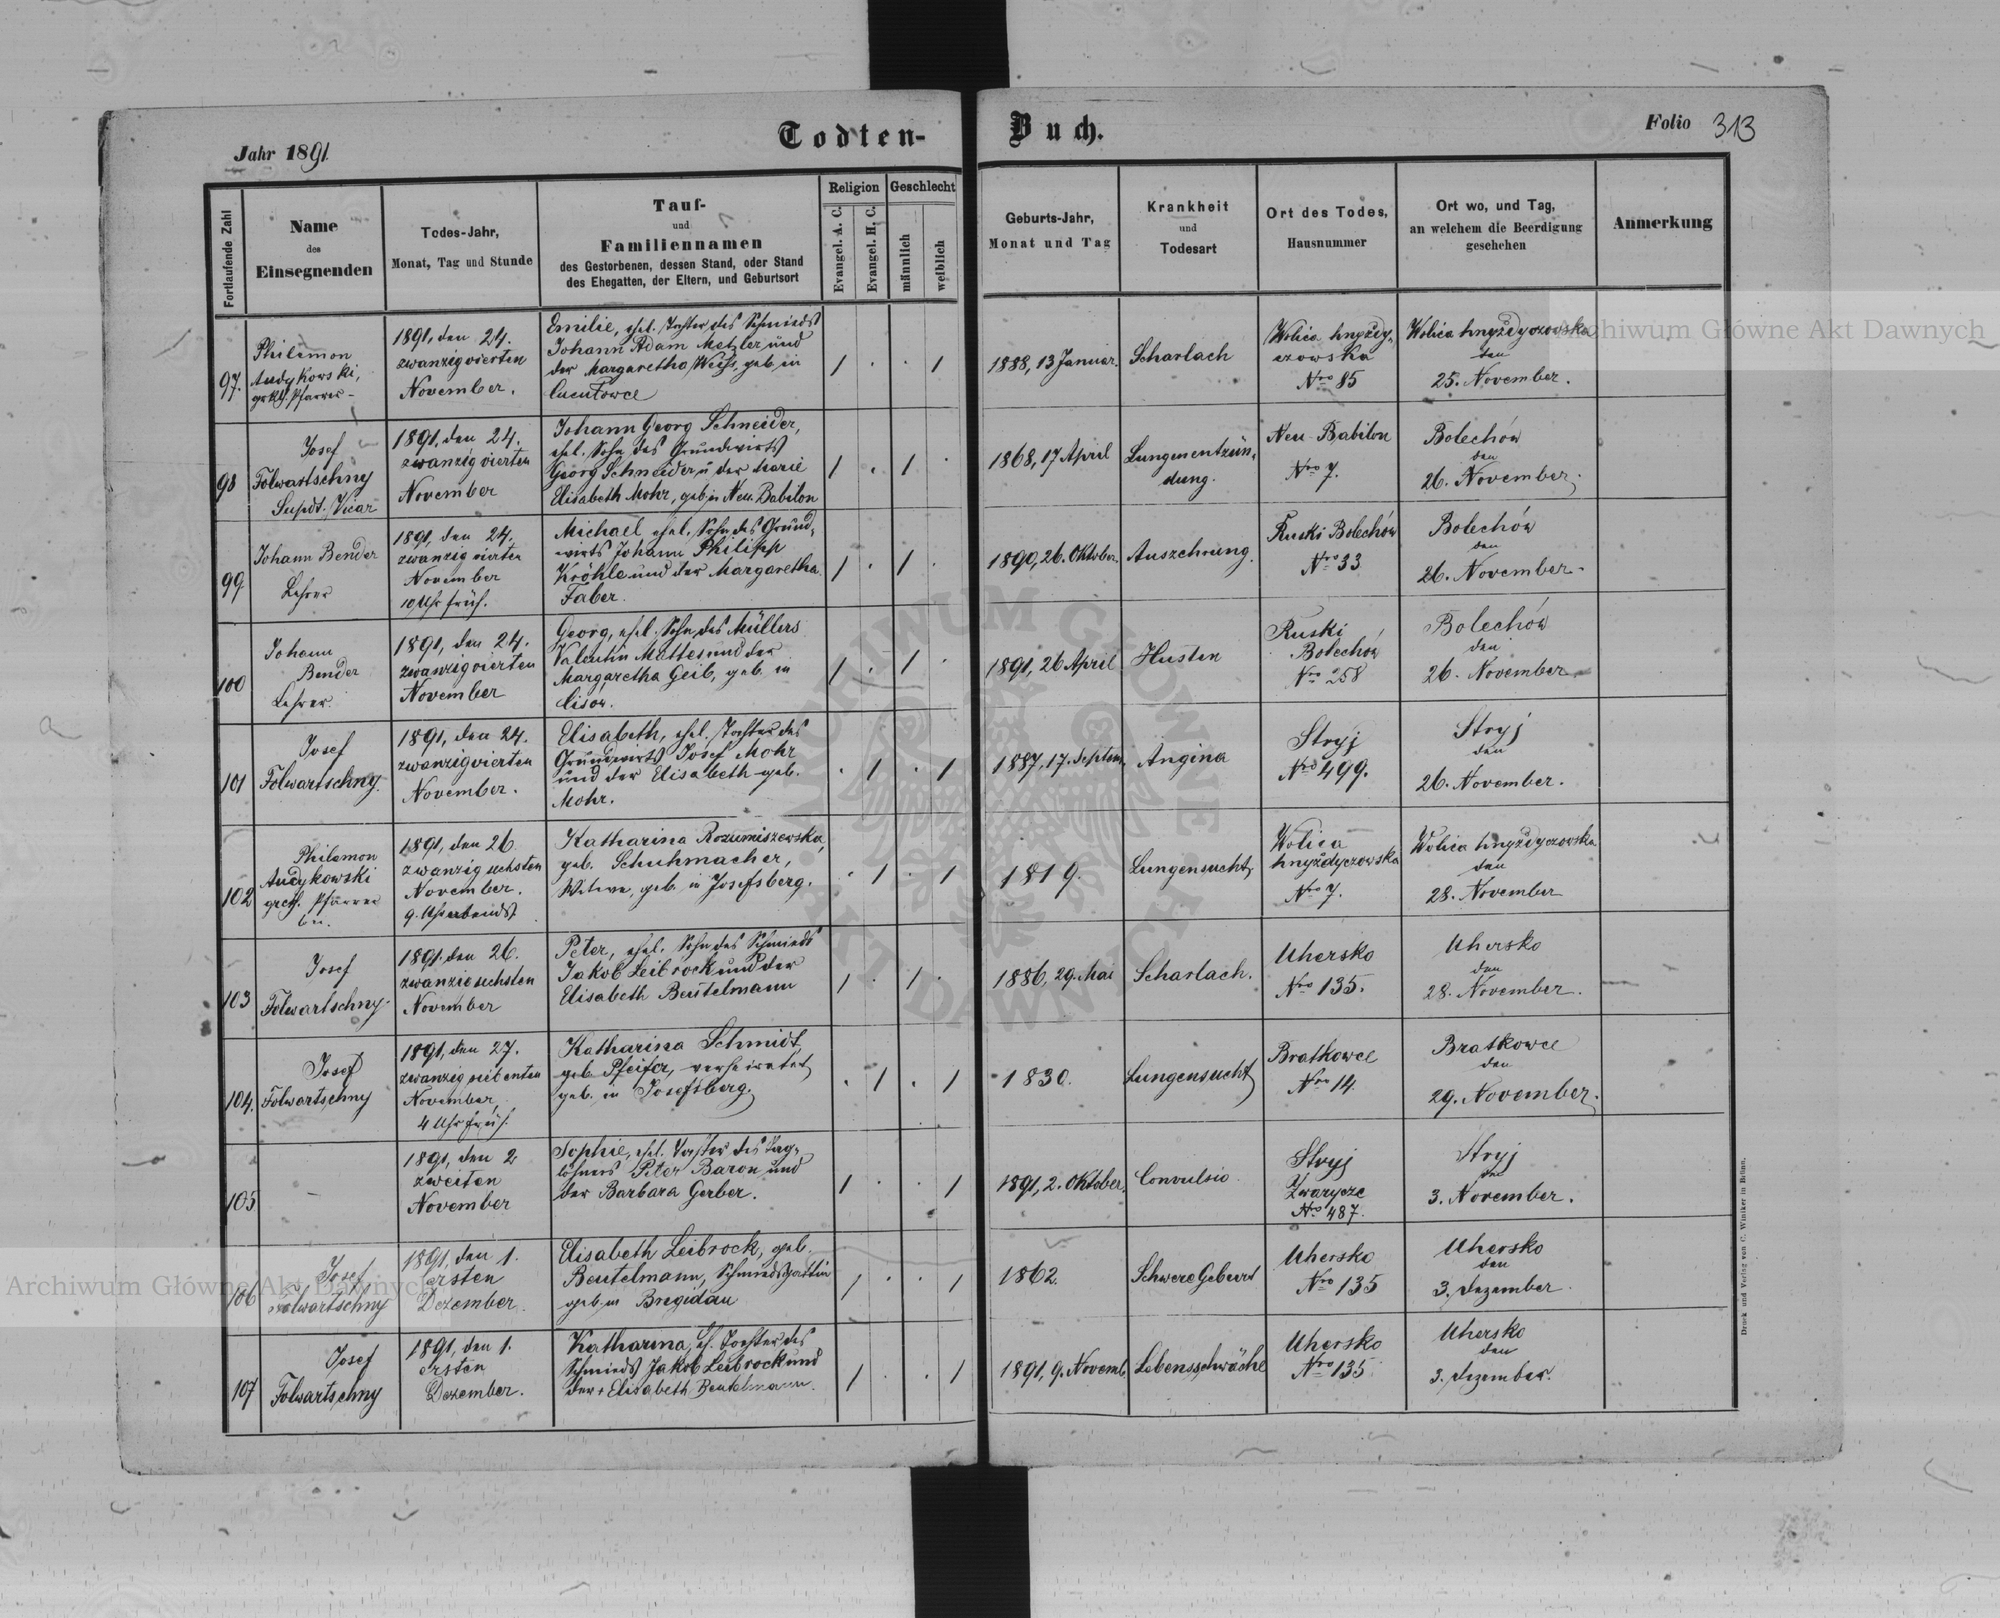 Jahr 1891.
Todten-
Buch.
Folio 313
Fortlaufende Zahl
Name
des
Einsegnenden
Todes-Jahr,
Monat, Tag und Stunde
Tauf-
und
Familiennamen
des Gestorbenen, dessen Stand, oder Stand
des Ehegatten, der Eltern, und Geburtsort
Religion
Evangel. A. C.
Evangel. H. C.
Geschlecht
männlich
weiblich
Geburts-Jahr,
Monat und Tag
Krankheit
und
Todesart
Ort des Todes,
Hausnummer
Ort wo, und Tag,
an welchem die Beerdigung
geschehen
Anmerkung
97.
Philemon
Audykowski,
grkth. Pfarrer -
1891, den 24.
zwanzigvierten
November.
Emilie, ehel. Tochter des Schmieds
Johann Adam Metzler und
der Margaretha Weiß, geb. in
Cucułowce
/ . . /
1888, 13 Januar.
Scharlach
Wolica hnyżdy-
czowska
Nro 85
Wolica hnyżdyczowska
den
25. November.
98
Josef
Folwartschny
Supdt. Vicar
1891, den 24.
zwanzigvierten
November
Johann Georg Schneider,
ehel. Sohn des Grundwirts
Georg Schneider u der Marie
Elisabeth Mohr, geb. in Neu-Babilon
/ . / .
1868, 17 April
Lungenentzün-
dung.
Neu-Babilon
Nro 7.
Bolechów
den
26. November.
99
Johann Bender
Lehrer
1891, den 24.
zwanzigvierten
November
10 Uhr früh.
Michael ehel. Sohn des Grund-
wirts Johann Philipp
Kröhle und der Margaretha
Faber.
/ . / .
1890, 26. Oktober.
Auszehrung.
Ruski Bolechów
Nro 33
Bolechów
den
26. November.
100
Johann
Bender
Lehrer.
1891, den 24.
zwanzigvierten
November
Georg, ehel. Sohn des Müllers
Valentin Mattes und der
Margaretha Geib, geb. in
Lisow.
/ . / .
1891, 26 April
Husten
Ruski
Bolechów
Nro 258
Bolechów
den
26. November
101
Josef
Folwartschny.
1891, den 24.
zwanzigvierten
November.
Elisabeth, ehel. Tochter des
Grundwirts Josef Mohr
und der Elisabeth geb.
Mohr.
. / . /
1887, 17. Septem.
Angina
Stryj
Nro 499.
Stryj
den
26. November.
102
Philemon
Audykowski
grcth. Pfarrer
1891, den 26
zwanzigsechsten
November.
9. Uhr abends
Katharina Rozumiszewska,
geb. Schuhmacher,
Witwe, geb. in Josefsberg.
. / . /
1819.
Lungensucht.
Wolica
hnyżdyczowska
Nro 7.
Wolica hnyżdyczowska
den
28. November
103
Josef
Folwartschny.
1891. den 26.
zwanzigsechsten
November
Peter, ehel. Sohn des Schmieds
Jakob Leibrock und der
Elisabeth Beutelmann
/ . / .
1886, 29. Mai
Scharlach.
Uhersko
Nro 135.
Uhersko
den
28. November.
104.
Josef
Folwartschny
1891, den 27.
zwanzigsiebenten
November,
4 Uhr früh.
Katharina Schmidt,
geb. Pfeifer, verheiratet
geb. in Josefsberg.
. / . /
1830.
Lungensucht
Bratkowce
Nro 14.
Bratkowce
den
29. November.
105
-
1891, den 2
zweiten
November
Sophie, ehel. Tochter des Tag-
löhners Peter Baron und
der Barbara Gerber.
/ . . /
1891, 2. Oktober.
Convulsio.
Stryj
Zwarycze
Nro 487.
Stryj
den
3. November.
106
Josef
Folwartschny
1891, den 1.
ersten
Dezember.
Elisabeth Leibrock, geb.
Beutelmann, Schmiedsgattin
geb. in Brigidau
/ . . /
1862.
Schwere Geburt
Uhersko
Nro 135
Uhersko
den
3. Dezember.
107
Josef
Folwartschny
1891, den 1.
ersten
Dezember.
Katharina, eh. Tochter des
Schmieds Jakob Leibrock und
der + Elisabeth Beutelmann.
/ . . /
1891, 9. Novemb.
Lebensschwäche
Uhersko
Nro 135.
Uhersko
den
3. Dezember.
Druck und Verlag von C. Winiker in Brünn.
Archiwum Główne Akt Dawnych
Archiwum Główne Akt Dawnych
ARCHIWUM GŁÓWNE
AKT DAWNYCH